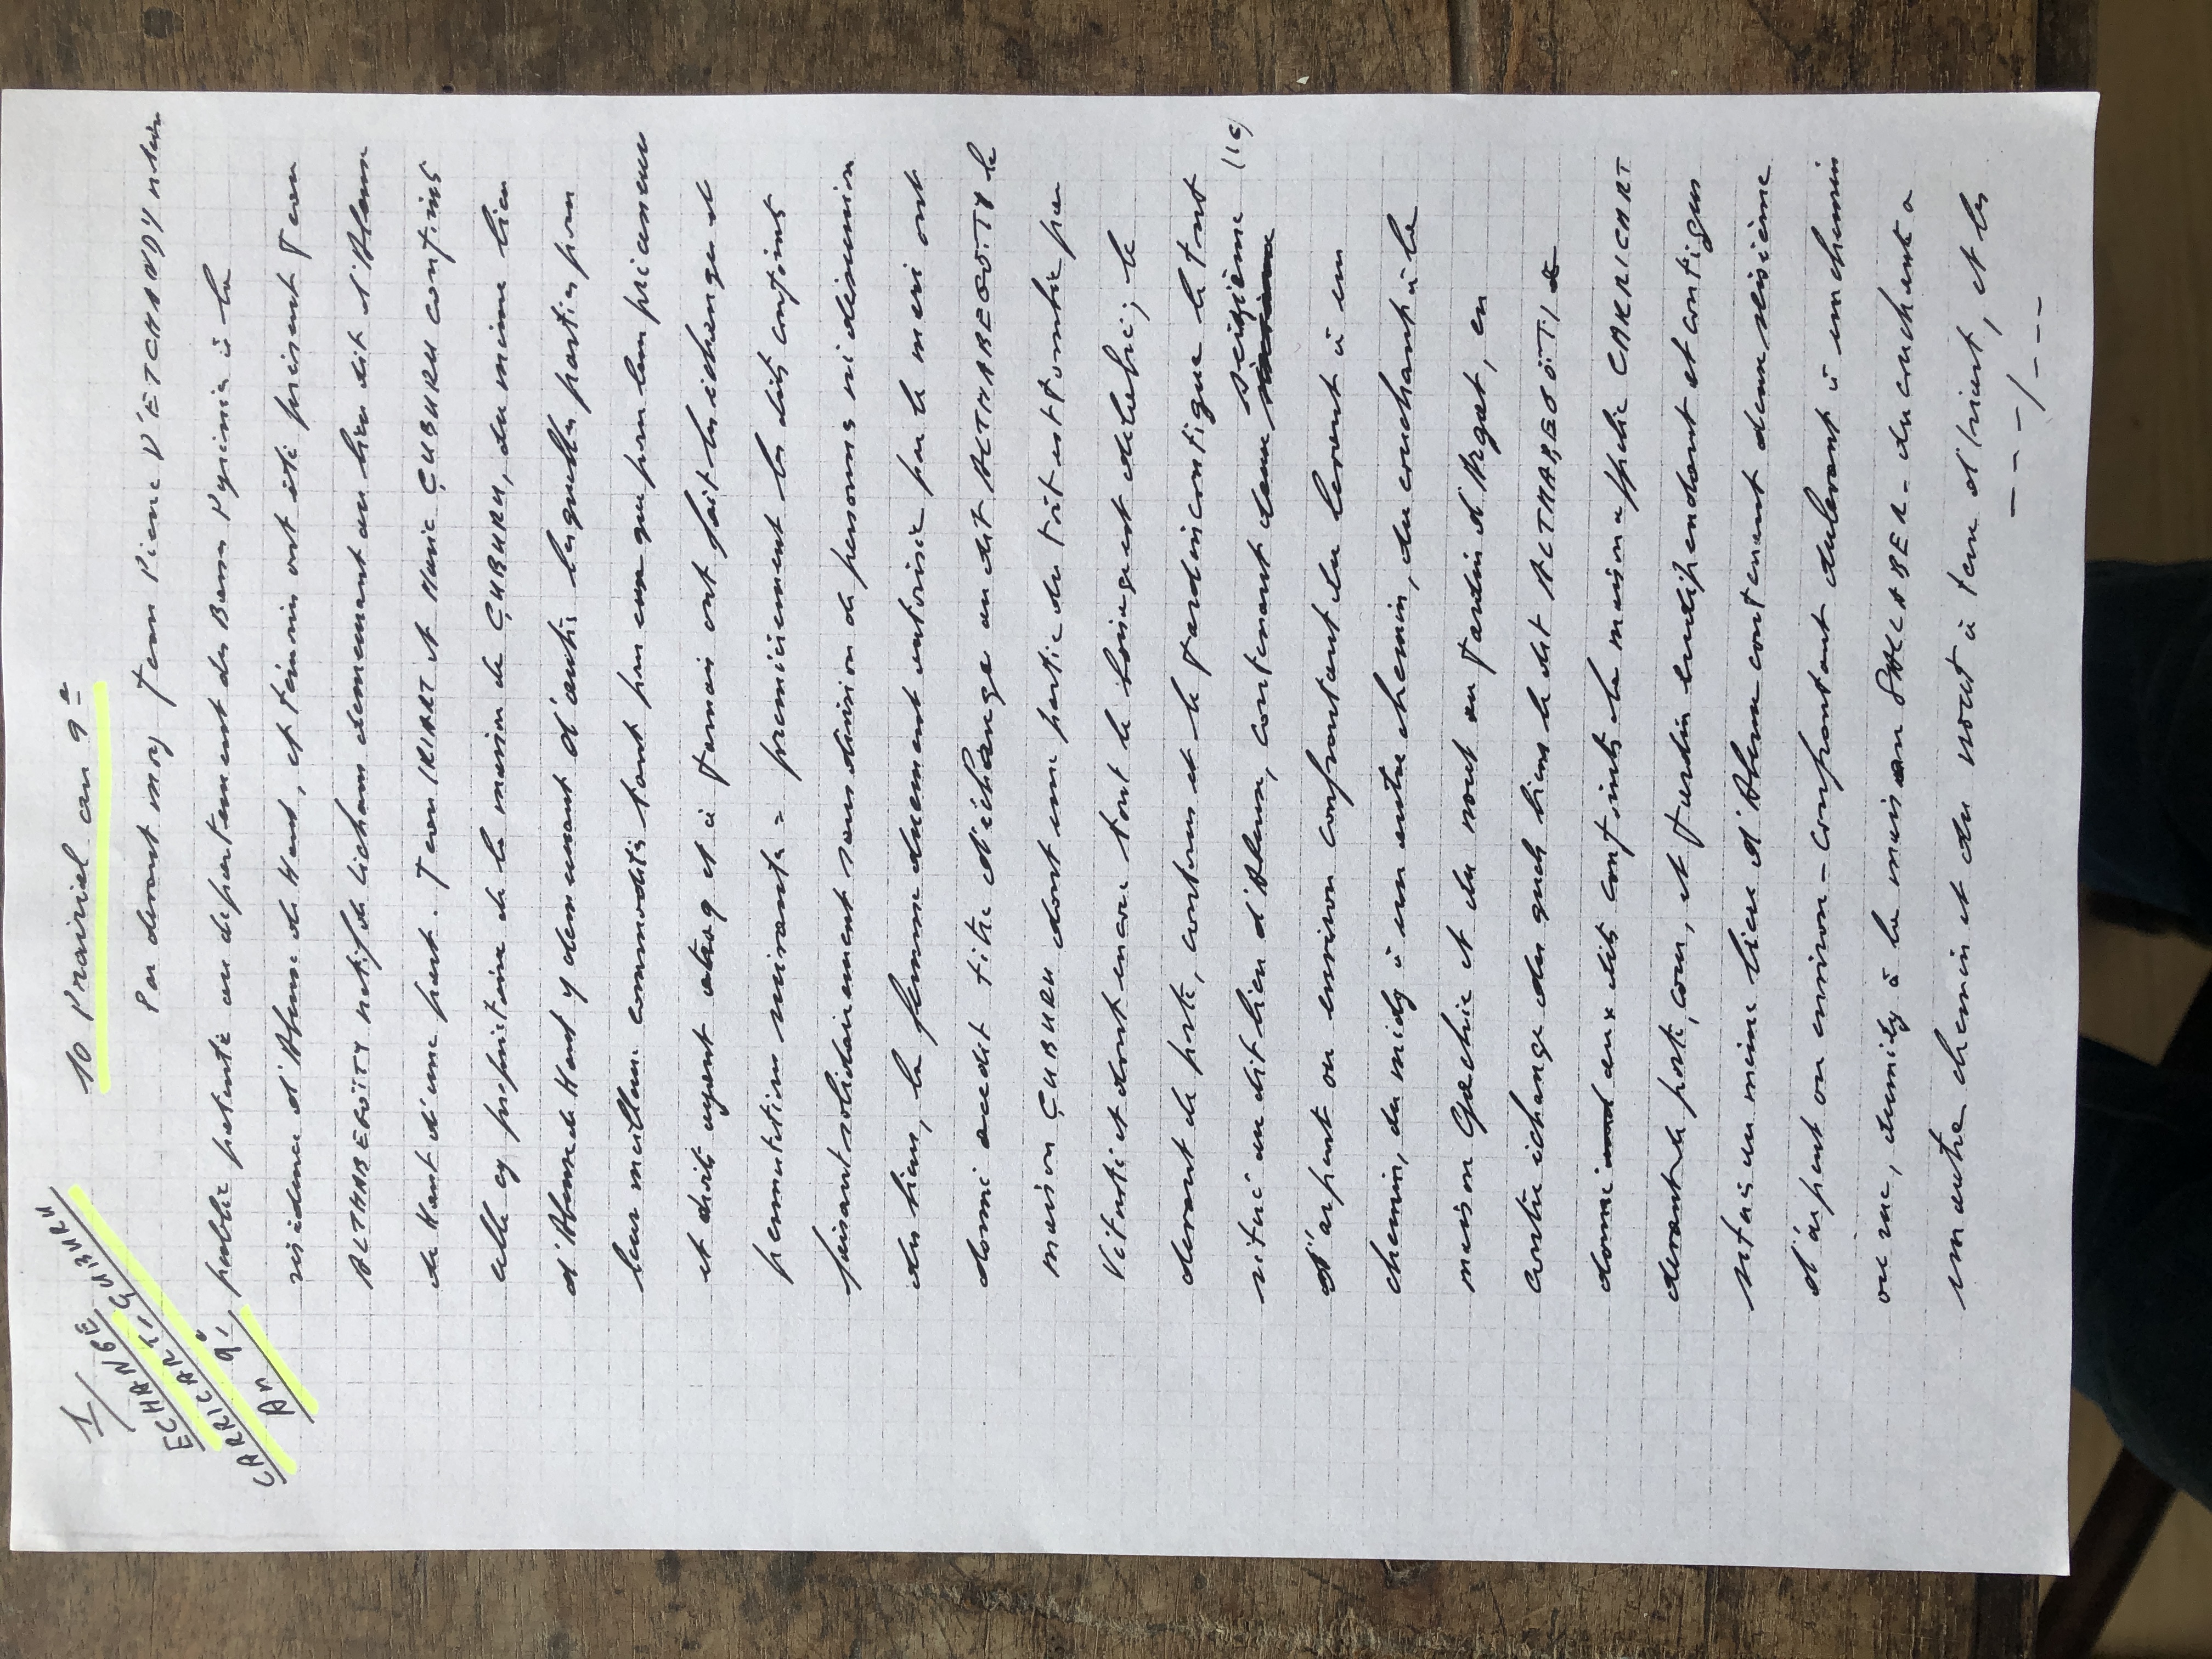 1/
ECHANGE
ECHART, ÇUBURU
CARRICART
An 9e
10 Prairial an 9e
Par devant moy Jean Pierre D'ETCHANDY notaire
public patenté au département des Basses Pyrénées à la
résidence d'Ahense de Haut, et témoins ont été présent Jean
ALTHABEGOÏTY natif de Lichans demeurant au lieu dit d'Ahense
de Haut d'une part. Jean IRIART et Marie ÇUBURU conjoints
celle cy propriétaire de la maison de ÇUBURU, du même lieu
d'Ahense de Haut y demeurant d'autre lesquelles parties pour
leur meilleure commodité tant pour eux que pour leurs
et droits ayant et à jamais ont fait les échanges et
permutations suivants = premièrement les dits conjoints
faisant solidairement sans division de personnes ni discussion
des biens, la femme duement autorisée par le mari ont
donné audit titre d'échange au dit ALTHABEGOÏTY la
maison ÇUBURU dont une partie du toit est tombée par
vétusté et dont encore tout le est délabré; le
devant de porte, contours et le jardin contigue le tout
situé au dit lieu d'Ahense, contenant deux seizième (16)
d'arpent ou environ confrontant du levant à un
chemin, du midy à un autre chemin, du couchant à la
maison et du nord au jardin d'Arget, en
contre échange des quels biens le dit ALTHABEGOÏTY a
donné aux dits conjoints la maison appelée CARRICART
devant de porte, cour, et jardin en dépendant et contigus
situés au même lieu d'Ahense contenant deux seizième
d'arpent ou environ - confrontant du levant à un chemin
ou rue, du midy à la maison SALLABER - du couchant a
un autre chemin et du nord à terre d'Iriart, et les
- - - / - - -